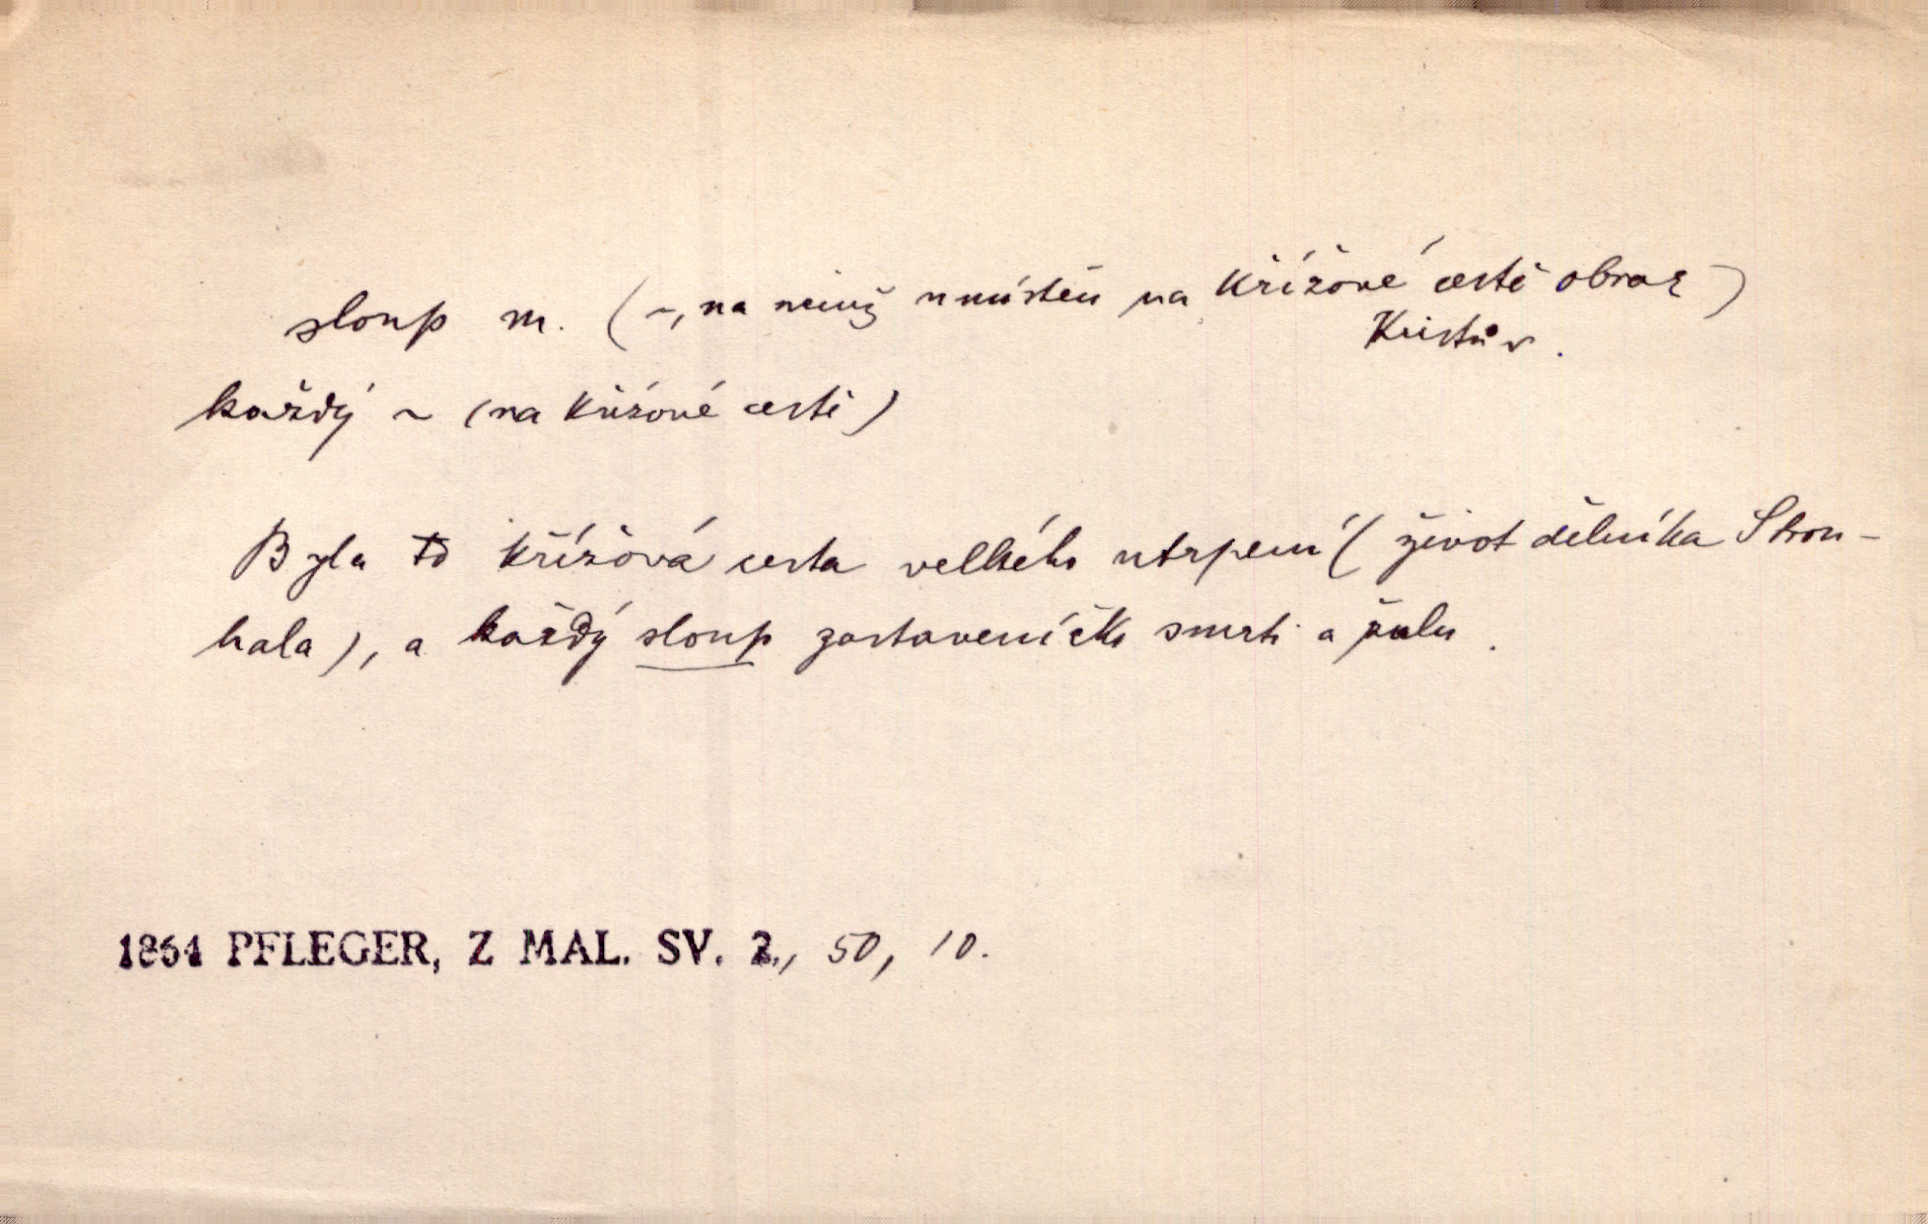 sloup m. (~, na němž umístěn na křížové cestě obraz)
Kristův.
každý ~ (na křížové cestě)
Byla to křížová cesta velkého utrpení (život dělníka Strou-
hala), a každý sloup zastaveníčko smrti a žalu.
1864 PFLEGER, Z MAL. SV. 2., 50, 10.